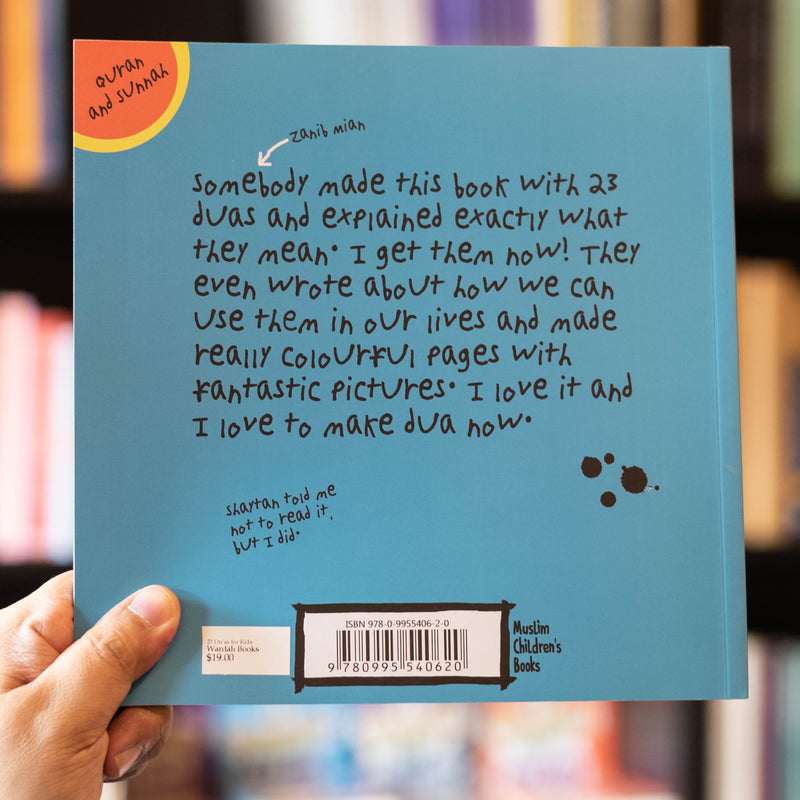 Quran
and sunnah
zanib mian
somebody made this book with 23
duas and explained exactly what
they mean. I get them now! They
even wrote about how we can
use them in our lives and made
really colourful pages with
fantastic pictures. I love it and
I love to make dua now.
shaytan told me
not to read it,
but I did.
ISBN 978-0-9955406-2-0
9 780995 540620
Muslim
Children's
Books
23 Du'as for Kids
Wardah Books
$19.00